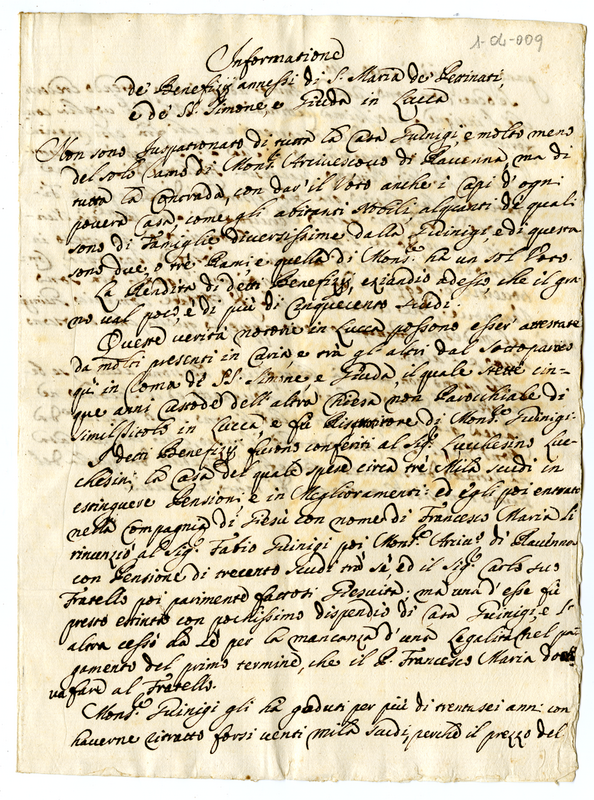 1-04-009
Informatione
de' Benefizij annessi di S. Maria de' Perinati,
e de' SS. Simone, e Giuda in Lucca
Non sono Juspatronato di tutta la Casa Guinigi, e molto meno
del solo Ramo di Mons.r Arcivescovo di Ravenna, ma di
tutta la Contrada, con dar' il Voto anche i Capi d'ogni
povera Casa come gli abitanti Nobili, alquanti de' quali
sono di Famiglie diversissime dalla Guinigi, e di questa
sono due, o trè Rami; e quella di Mons.r ha un sol Voto.
La Rendita di detti Benefizij, eziandio adesso che il gra-
no val poco, è di più di Cinquecento Scudi.
Queste verità notorie in Lucca possono esser' attestate
da molti presenti in Curia, e trà gli altri dal Sottoparroco
qui in Roma de' SS. Simone, e Giuda, il quale stette cin-
que anni Custode dell'altra Chiesa non Parochiale di
simil titolo in Lucca, e fù Riscotitore di Mons.r Guinigi.
I detti Benefizij furono conferiti al Sig.r Lucchesino Luc-
chesini, la Casa del quale spese circa trè Mila Scudi in
estinguere Pensioni, e in Miglioramenti: ed egli poi entrato
nella Compagnia di Giesù con nome di Francesco Maria li
rinunziò al Sig.r Fabio Guinigi poi Mons.r Arciv.o di Ravenna
con Pensione di trecento Scudi trà sè, ed il Sig.r Carlo suo
Fratello poi parimente fattosi Giesuita; ma una d'esse fù
presto estinta con pochissimo dispendio di Casa Guinigi, e l'
altra cessò da sè per la mancanza d'una Legalità nel pa-
gamento del primo termine, che il P. Francesco Maria dove
va fare al Fratello.
Mons.r Guinigi gli hà goduti per più di trentasei anni con
haverne ritratto forsi venti mila Scudi, perche il prezzo del